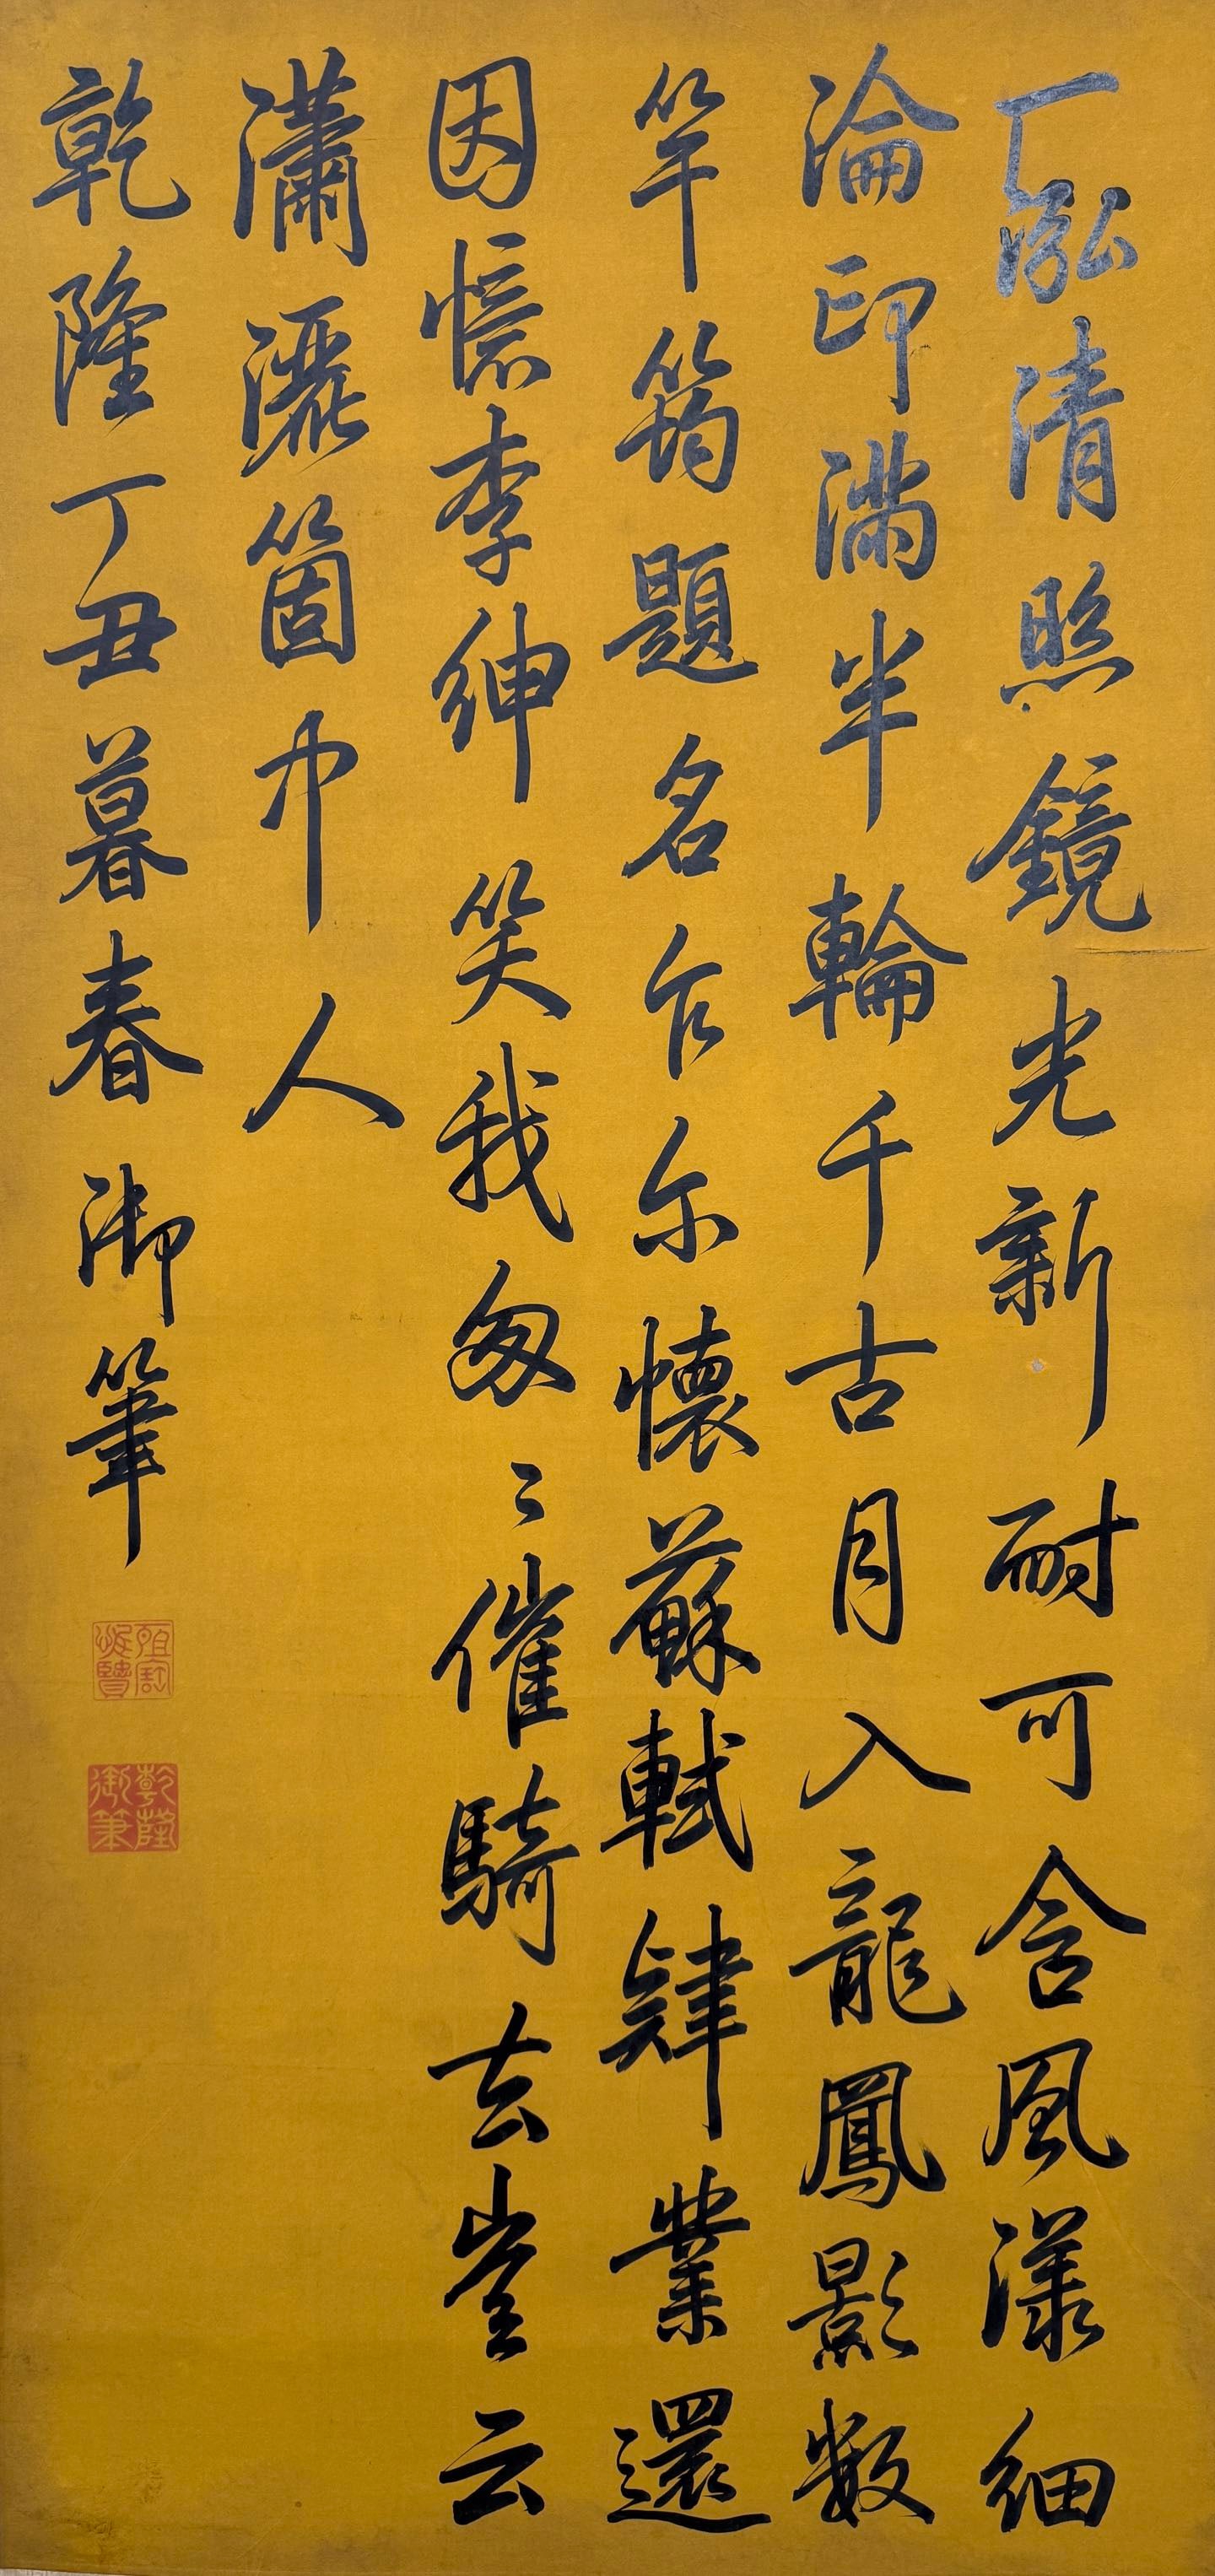 一泓清照鏡光新耐可含風漾細
淪印滿半輪千古月入龍鳳影數
竿筠題名乍尔懷蘇軾肄業還
因憶李紳笑我匆〻催騎去豈云
瀟灑箇中人
乾隆丁丑暮春御筆
所寶惟賢
乾隆御筆